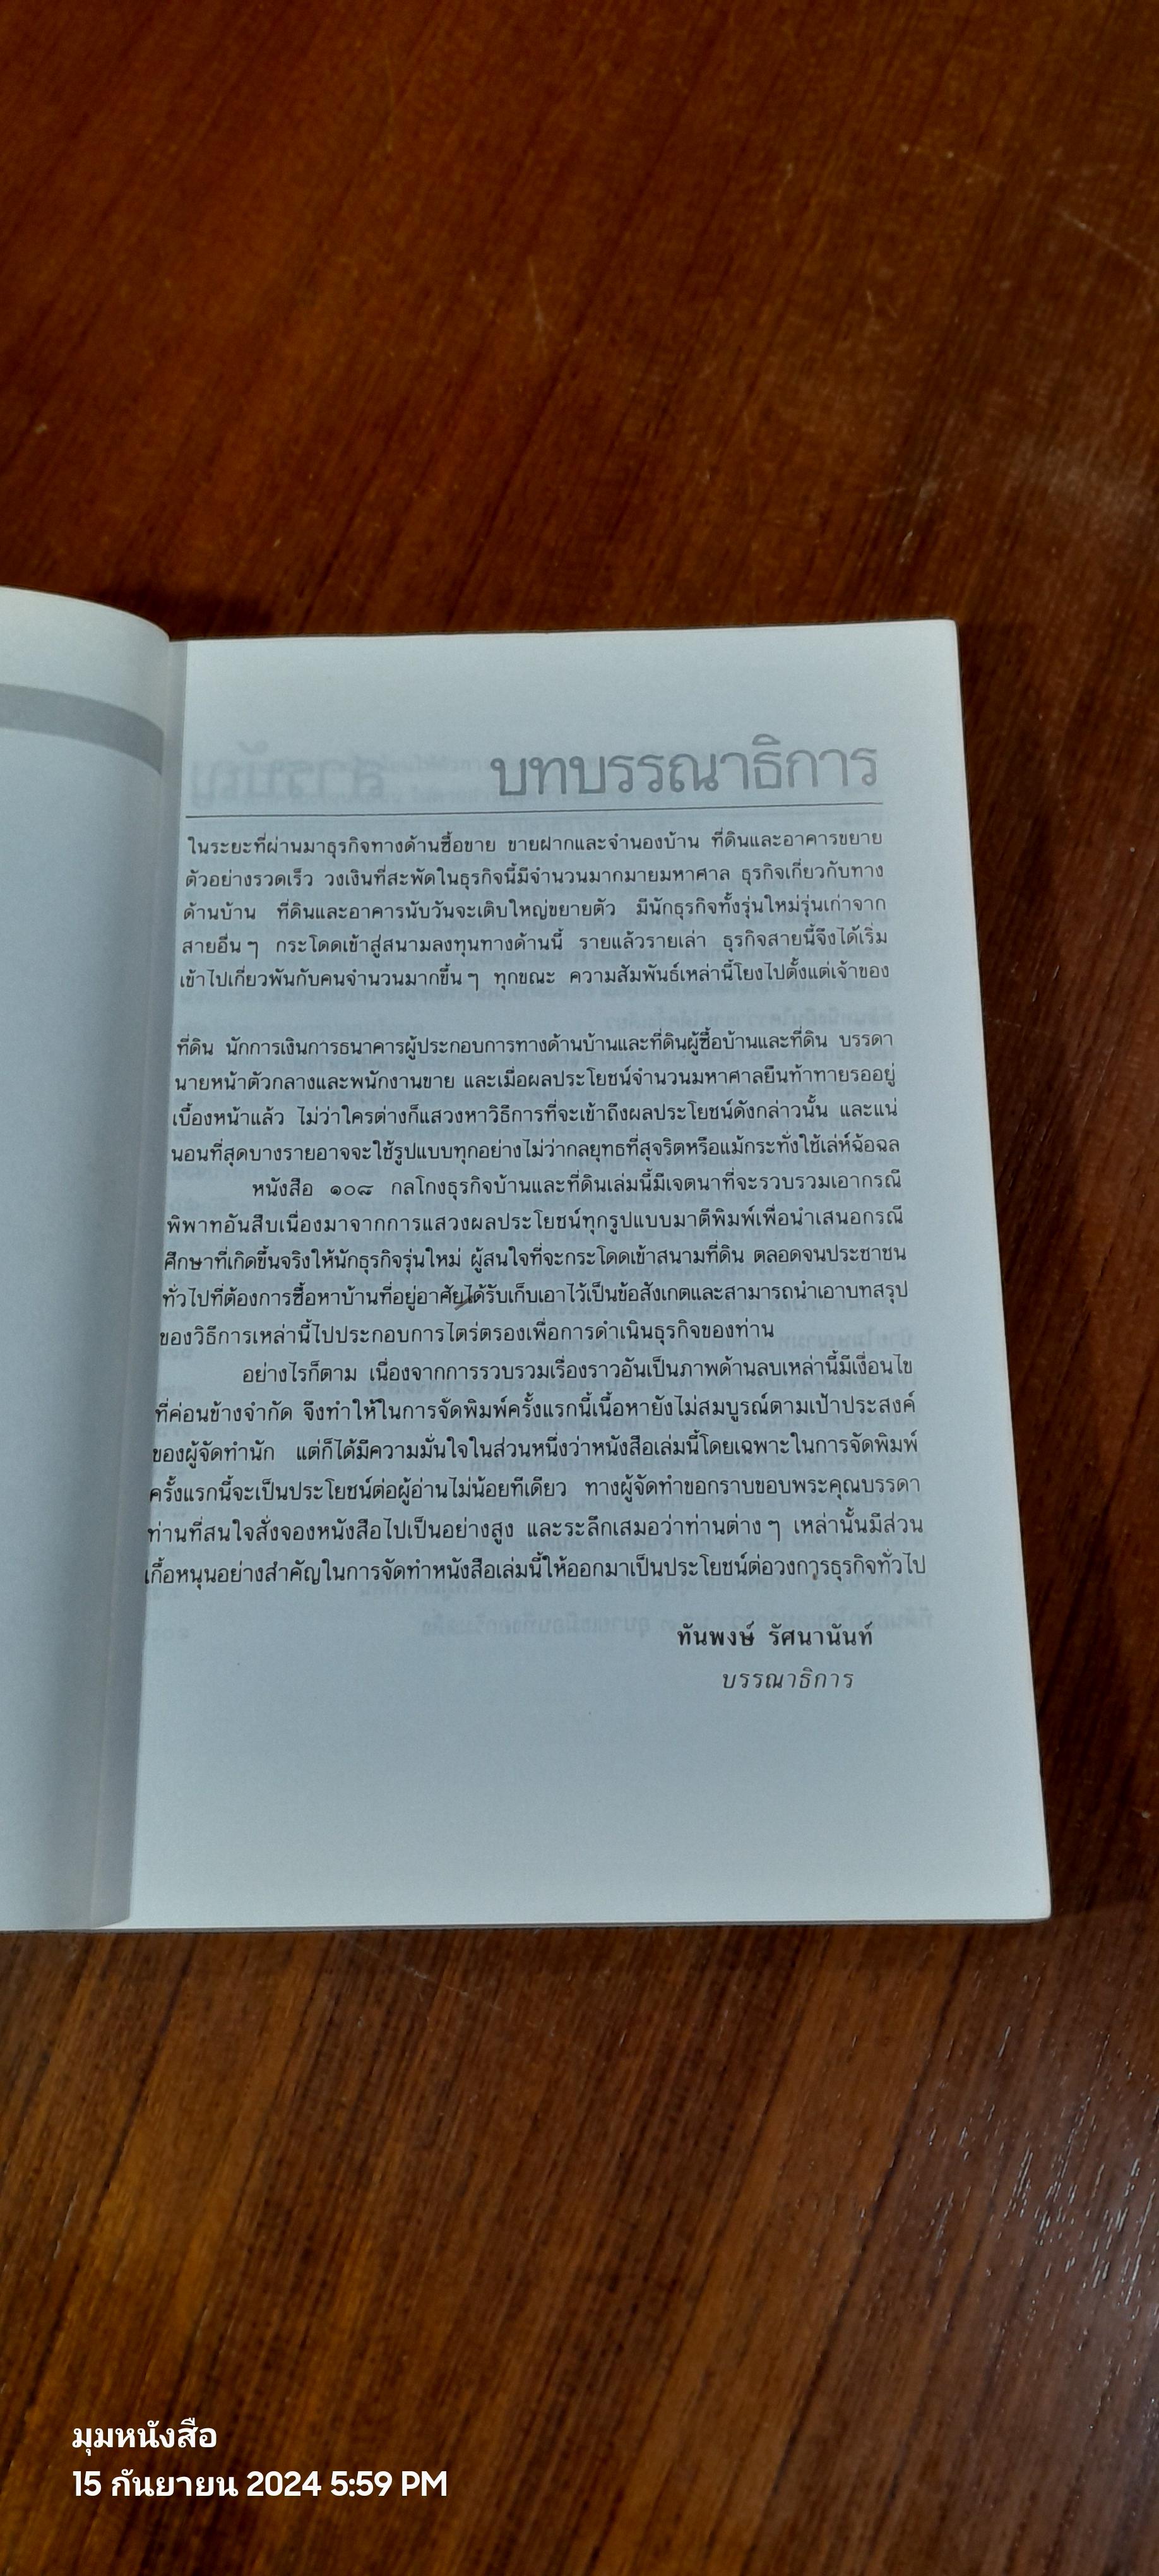 บทบรรณาธิการ
ในระยะที่ผ่านมาธุรกิจทางด้านซื้อขาย ขายฝากและจำนองบ้าน ที่ดินและอาคารขยาย
ตัวอย่างรวดเร็ว วงเงินที่สะพัดในธุรกิจนี้มีจำนวนมากมายมหาศาล ธุรกิจเกี่ยวกับทาง
ด้านบ้าน ที่ดินและอาคารนับวันจะเติบใหญ่ขยายตัว มีนักธุรกิจทั้งรุ่นใหม่รุ่นเก่าจาก
สายอื่น ๆ กระโดดเข้าสู่สนามลงทุนทางด้านนี้ รายแล้วรายเล่า ธุรกิจสายนี้จึงได้เริ่ม
เข้าไปเกี่ยวพันกับคนจำนวนมากขึ้น ๆ ทุกขณะ ความสัมพันธ์เหล่านี้โยงไปตั้งแต่เจ้าของ
ที่ดิน นักการเงินการธนาคารผู้ประกอบการทางด้านบ้านและที่ดินผู้ซื้อบ้านและที่ดิน บรรดา
นายหน้าตัวกลางและพนักงานขาย และเมื่อผลประโยชน์จำนวนมหาศาลยืนท้าทายรออยู่
เบื้องหน้าแล้ว ไม่ว่าใครต่างก็แสวงหาวิธีการที่จะเข้าถึงผลประโยชน์ดังกล่าวนั้น และแน่
นอนที่สุดบางรายอาจจะใช้รูปแบบทุกอย่างไม่ว่ากลยุทธที่สุจริตหรือแม้กระทั่งใช้เล่ห์ฉ้อฉล
หนังสือ ๑๐๘ กลโกงธุรกิจบ้านและที่ดินเล่มนี้มีเจตนาที่จะรวบรวมเอากรณี
พิพาทอันสืบเนื่องมาจากการแสวงผลประโยชน์ทุกรูปแบบมาตีพิมพ์เพื่อนำเสนอกรณี
ศึกษาที่เกิดขึ้นจริงให้นักธุรกิจรุ่นใหม่ ผู้สนใจที่จะกระโดดเข้าสนามที่ดิน ตลอดจนประชาชน
ทั่วไปที่ต้องการซื้อหาบ้านที่อยู่อาศัยได้รับเก็บเอาไว้เป็นข้อสังเกตและสามารถนำเอาบทสรุป
ของวิธีการเหล่านี้ไปประกอบการไตร่ตรองเพื่อการดำเนินธุรกิจของท่าน
อย่างไรก็ตาม เนื่องจากการรวบรวมเรื่องราวอันเป็นภาพด้านลบเหล่านี้มีเงื่อนไข
ที่ค่อนข้างจำกัด จึงทำให้ในการจัดพิมพ์ครั้งแรกนี้เนื้อหายังไม่สมบูรณ์ตามเป้าประสงค์
ของผู้จัดทำนัก แต่ก็ได้มีความมั่นใจในส่วนหนึ่งว่าหนังสือเล่มนี้โดยเฉพาะในการจัดพิมพ์
ครั้งแรกนี้จะเป็นประโยชน์ต่อผู้อ่านไม่น้อยทีเดียว ทางผู้จัดทำขอกราบขอบพระคุณบรรดา
ท่านที่สนใจสั่งจองหนังสือไปเป็นอย่างสูง และระลึกเสมอว่าท่านต่าง ๆ เหล่านั้นมีส่วน
เกื้อหนุนอย่างสำคัญในการจัดทำหนังสือเล่มนี้ให้ออกมาเป็นประโยชน์ต่อวงการธุรกิจทั่วไป
ทันพงษ์ รัศนานันท์
บรรณาธิการ
มุมหนังสือ
15 กันยายน 2024 5:59 PM